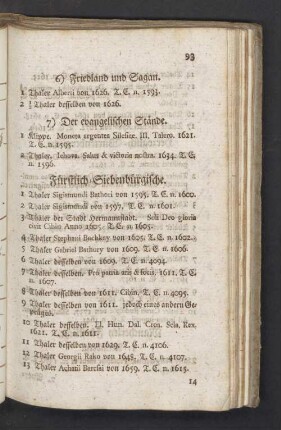 93
6) Friedland und Sagan.
1 Thaler Alberti von 1626. T. C. n. 1593.
2 Thaler desselben von 1626.
7) Der evangelischen Stände.
1 Klippe. Moneta argentea Silesiae. III. Talero. 1621.
T. C. n. 1595.
2 Thaler. Jahova. Salus & victoria nostra. 1634. T. C.
n. 1596.
Fürstlich-Siebenbürgische.
1 Thaler Sigismundi Bathori von 1595. T. C. n. 1600.
2 Thaler Sigismundi von 1597. T. C. n. 1601.
3 Thaler der Stadt Hermannstadt. Soli Deo gloria
Civit Cibin Anno 1605. T. C. n. 1605.
4 Thaler Stephani Bochkay von 1605. T. C. n. 1602.
5 Thaler Gabriel Bathory von 1609. T. C. n. 1606.
6 Thaler desselben von 1609. T. C. n. 4094.
7 Thaler desselben. Pro patria aris & focis. 1611. T. C.
n. 1607.
8 Thaler desselben von 1611. Cibin. T. C. n. 4095.
9 Thaler desselben von 1611. jedoch eines andern Ge-
10 Thaler desselben. II. Hun. Dal. Croa. Scla. Rex.
1621. T. C. n. 1611.
11 Thaler desselben von 1629. T. C. n. 4106.
12 Thaler Georgii Rako von 1648. T. C. n. 4107.
13 Thaler Achatii Barcsai von 1659. T. C. n. 1615.
14